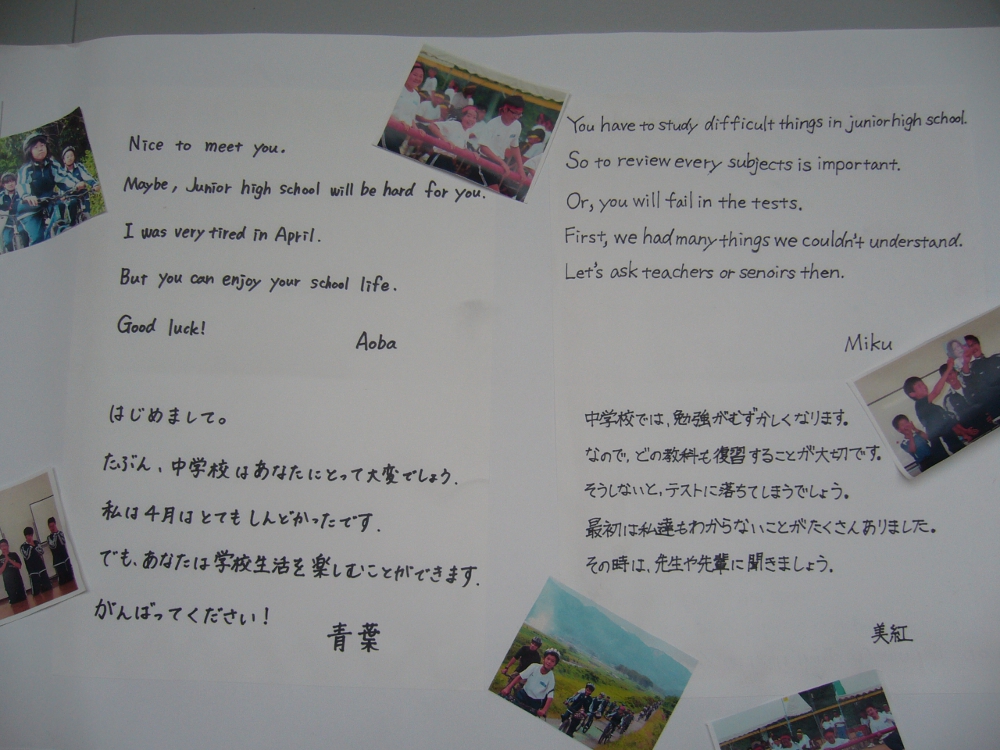 Nice to meet you.
Maybe, Junior high school will be hard for you.
I was very tired in April.
But you can enjoy your school life.
Good luck!
Aoba
はじめまして。
たぶん、中学校はあなたにとって大変でしょう.
私は4月はとてもしんどかったです.
でも、あなたは学校生活を楽しむことができます.
がんばってください!
青葉
You have to study difficult things in junior high school.
So to review every subjects is important.
Or, you will fail in the tests.
First, we had many things we couldn't understand.
Let's ask teachers or senoirs then.
Miku
中学校では、勉強がむずかしくなります。
なので、どの教科も復習することが大切です。
そうしないと、テストに落ちてしまうでしょう。
最初は私達もわからないことがたくさんありました。
その時は、先生や先輩に聞きましょう。
美紅